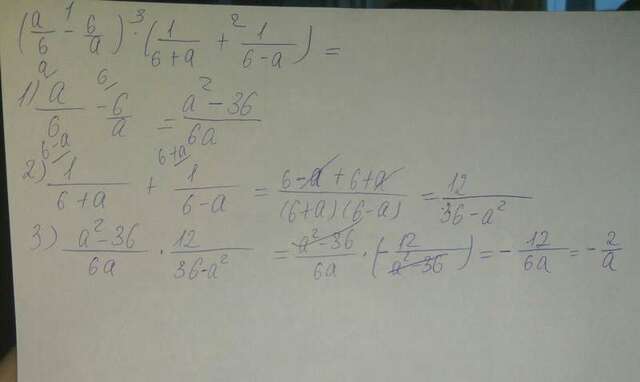 (a/6 - 6/a) · (1/(6+a) + 1/(6-a)) =
1) a/6 - 6/a = (a² - 36)/6a
2) 1/(6+a) + 1/(6-a) = (6-a+6+a)/((6+a)(6-a)) = 12/(36-a²)
3) (a²-36)/6a · 12/(36-a²) = (a²-36)/6a · (-12/(a²-36)) = -12/6a = -2/a